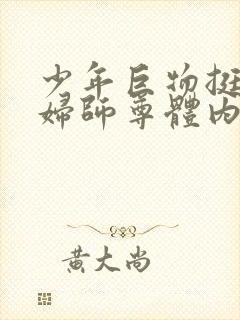 少年巨物挺
婦師尊體内
黃大尚